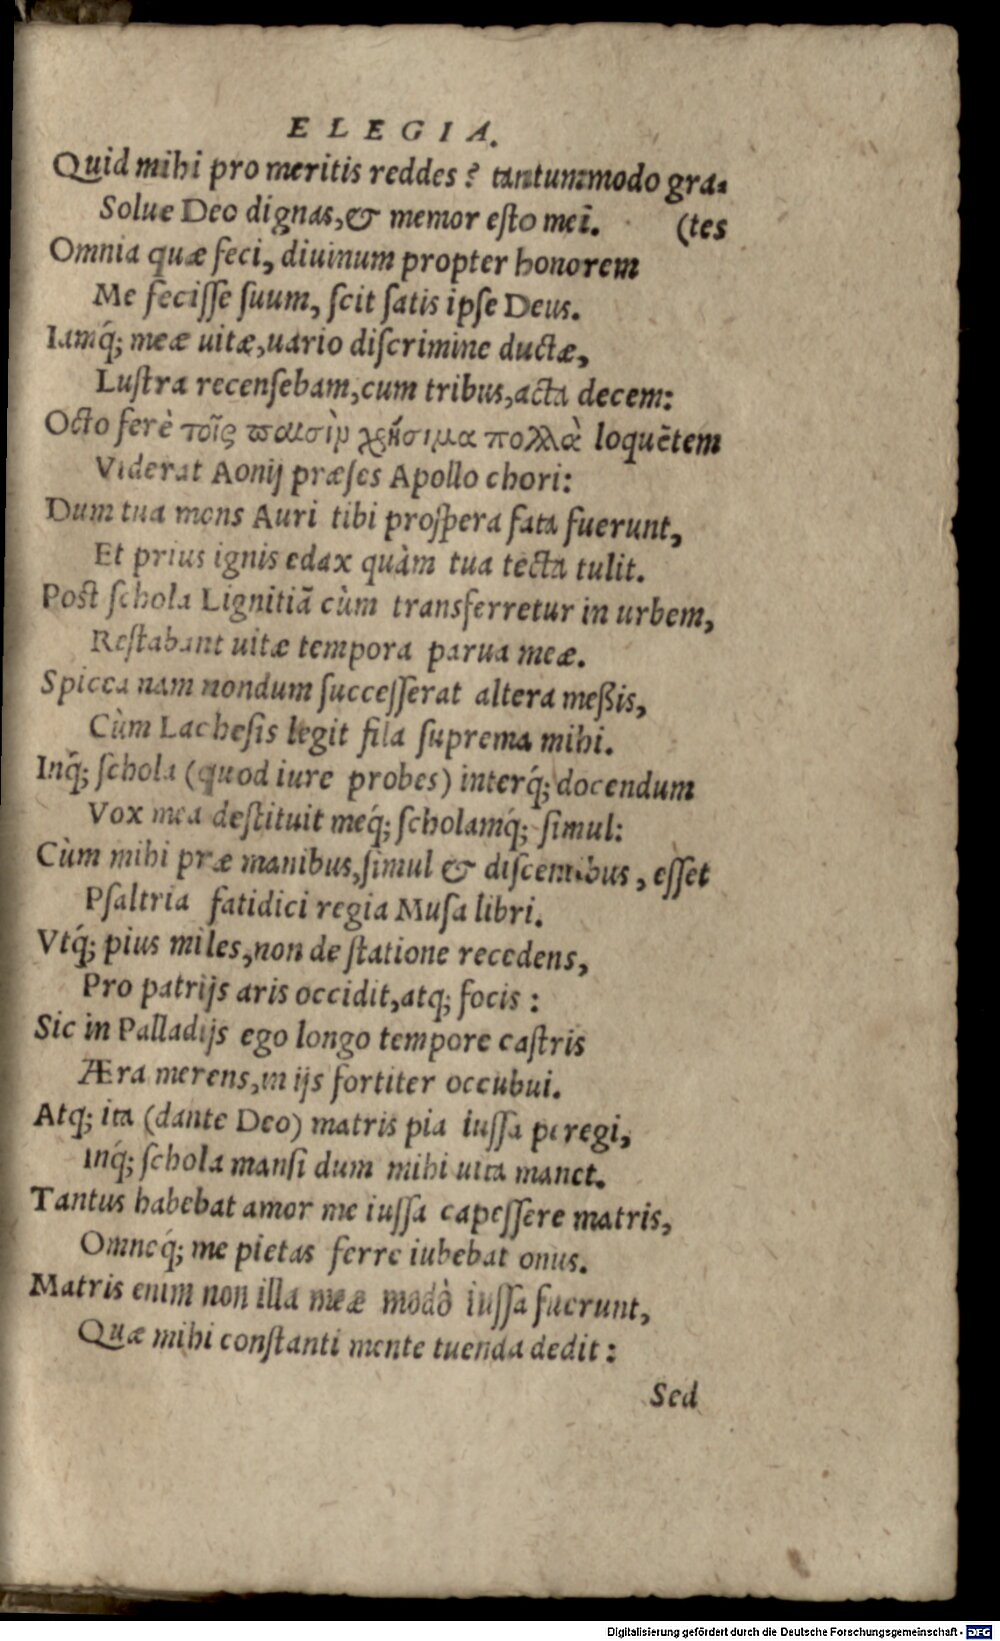 ELEGIA.
Quid mihi pro meritis reddes? tantummodo gra-
Solue Deo dignas, & memor esto meî. (tes
Omnia quæ feci, diuinum propter honorem
Me fecisse suum, scit satis ipse Deus.
Iamq́; meæ uitæ, uario discrimine ductæ,
Lustra recensebam, cum tribus, acta decem:
Octo ferè τοῖς παισὶν χρήσιμα πολλὰ loquẽtem
Viderat Aonij præses Apollo chori:
Dum tua mons Auri tibi prospera fata fuerunt,
Et prius ignis edax quàm tua tecta tulit.
Post schola Lignitiã cùm transferretur in urbem,
Restabant uitæ tempora parua meæ.
Spicea nam nondum successerat altera meßis,
Cùm Lachesis legit fila suprema mihi.
Inq́; schola (quod iure probes) interq́; docendum
Vox mea destituit meq́; scholamq́; simul:
Cùm mihi præ manibus, simul & discentibus, esset
Psaltria fatidici regia Musa libri.
Vtq́; pius miles, non de statione recedens,
Pro patrijs aris occidit, atq; focis:
Sic in Palladijs ego longo tempore castris
Æra merens, in ijs fortiter occubui.
Atq; ita (dante Deo) matris pia iussa peregi,
Inq́; schola mansi dum mihi uita manet.
Tantus habebat amor me iussa capessere matris,
Omneq́; me pietas ferre iubebat onus.
Matris enim non illa meæ modò iussa fuerunt,
Quæ mihi constanti mente tuenda dedit:
Sed
Digitalisierung gefördert durch die Deutsche Forschungsgemeinschaft - DFG